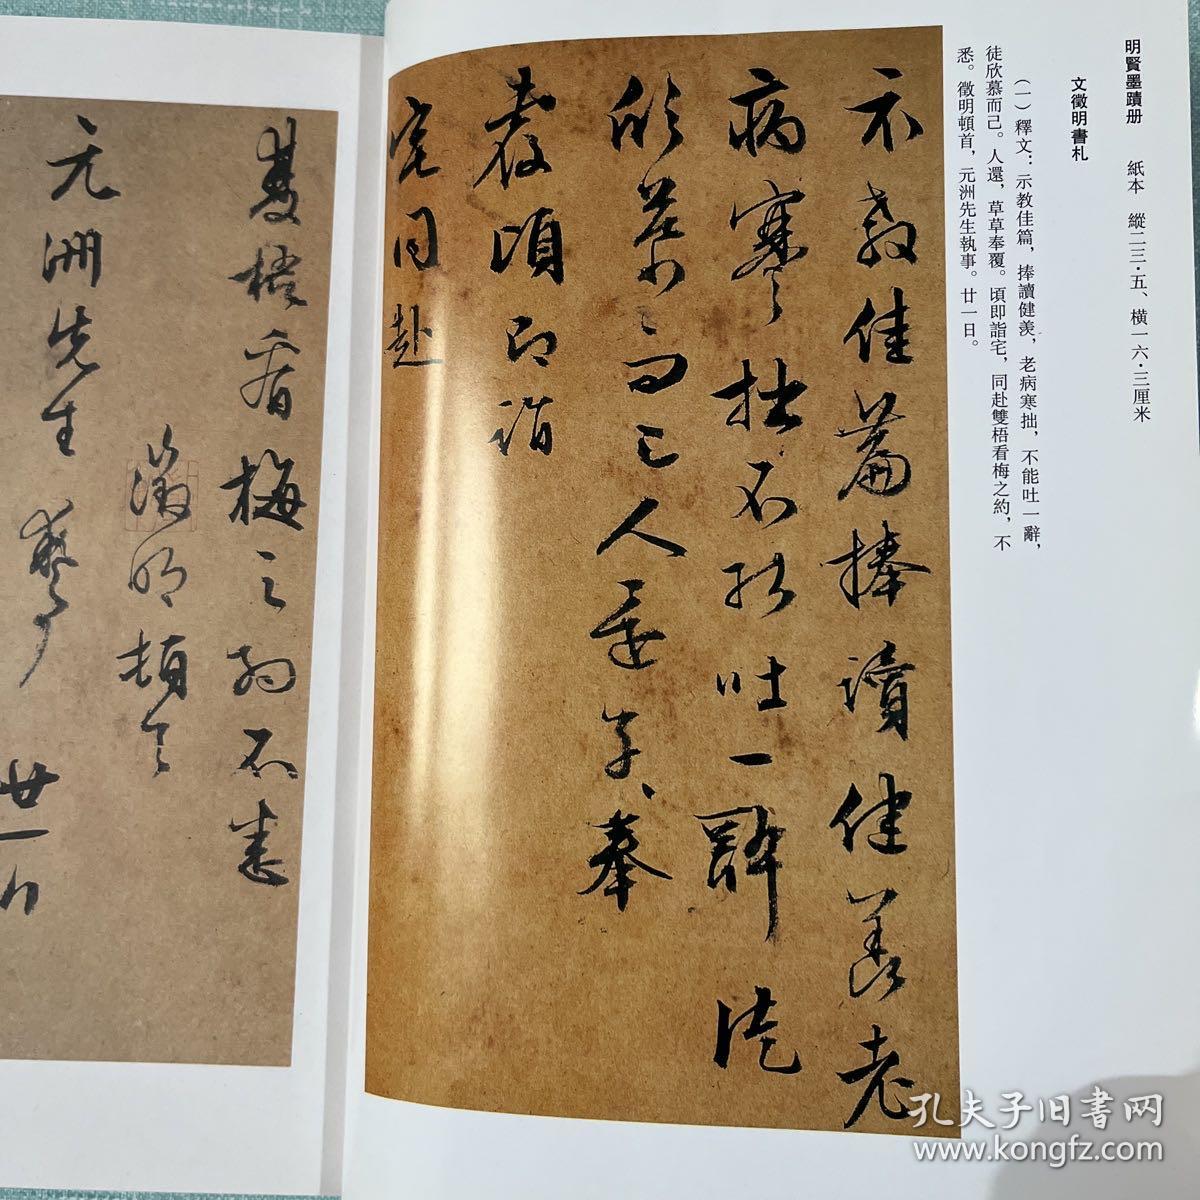 明賢墨蹟册　紙本　縱二三·五、橫一六·三厘米
文徵明書札
（一）釋文：示教佳篇，捧讀健羨，老病寒拙，不能吐一辭，
徒欣慕而已。人還，草草奉覆。頃即詣宅，同赴雙梧看梅之約，不
悉。徵明頓首，元洲先生執事。廿一日。
示教佳篇捧讀健羨老
病寒拙不能吐一辭徒
欣慕而已人還草々奉
覆頃即詣
宅同赴
雙梧看梅之約不悉
徵明頓首
元洲先生執事
廿一日
孔夫子旧書网
www.kongfz.com